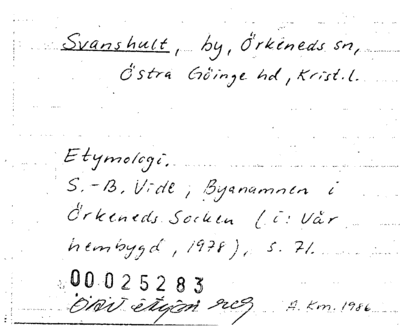 Svanshult, by, Örkeneds sn,
Östra Göinge hd, Krist.l.
Etymologi.
S.-B. Vide, Byanamnen i
Örkeneds Socken (i: Vår
hembygd, 1978), s. 71.
00025283
ÖAU A. Km. 1986